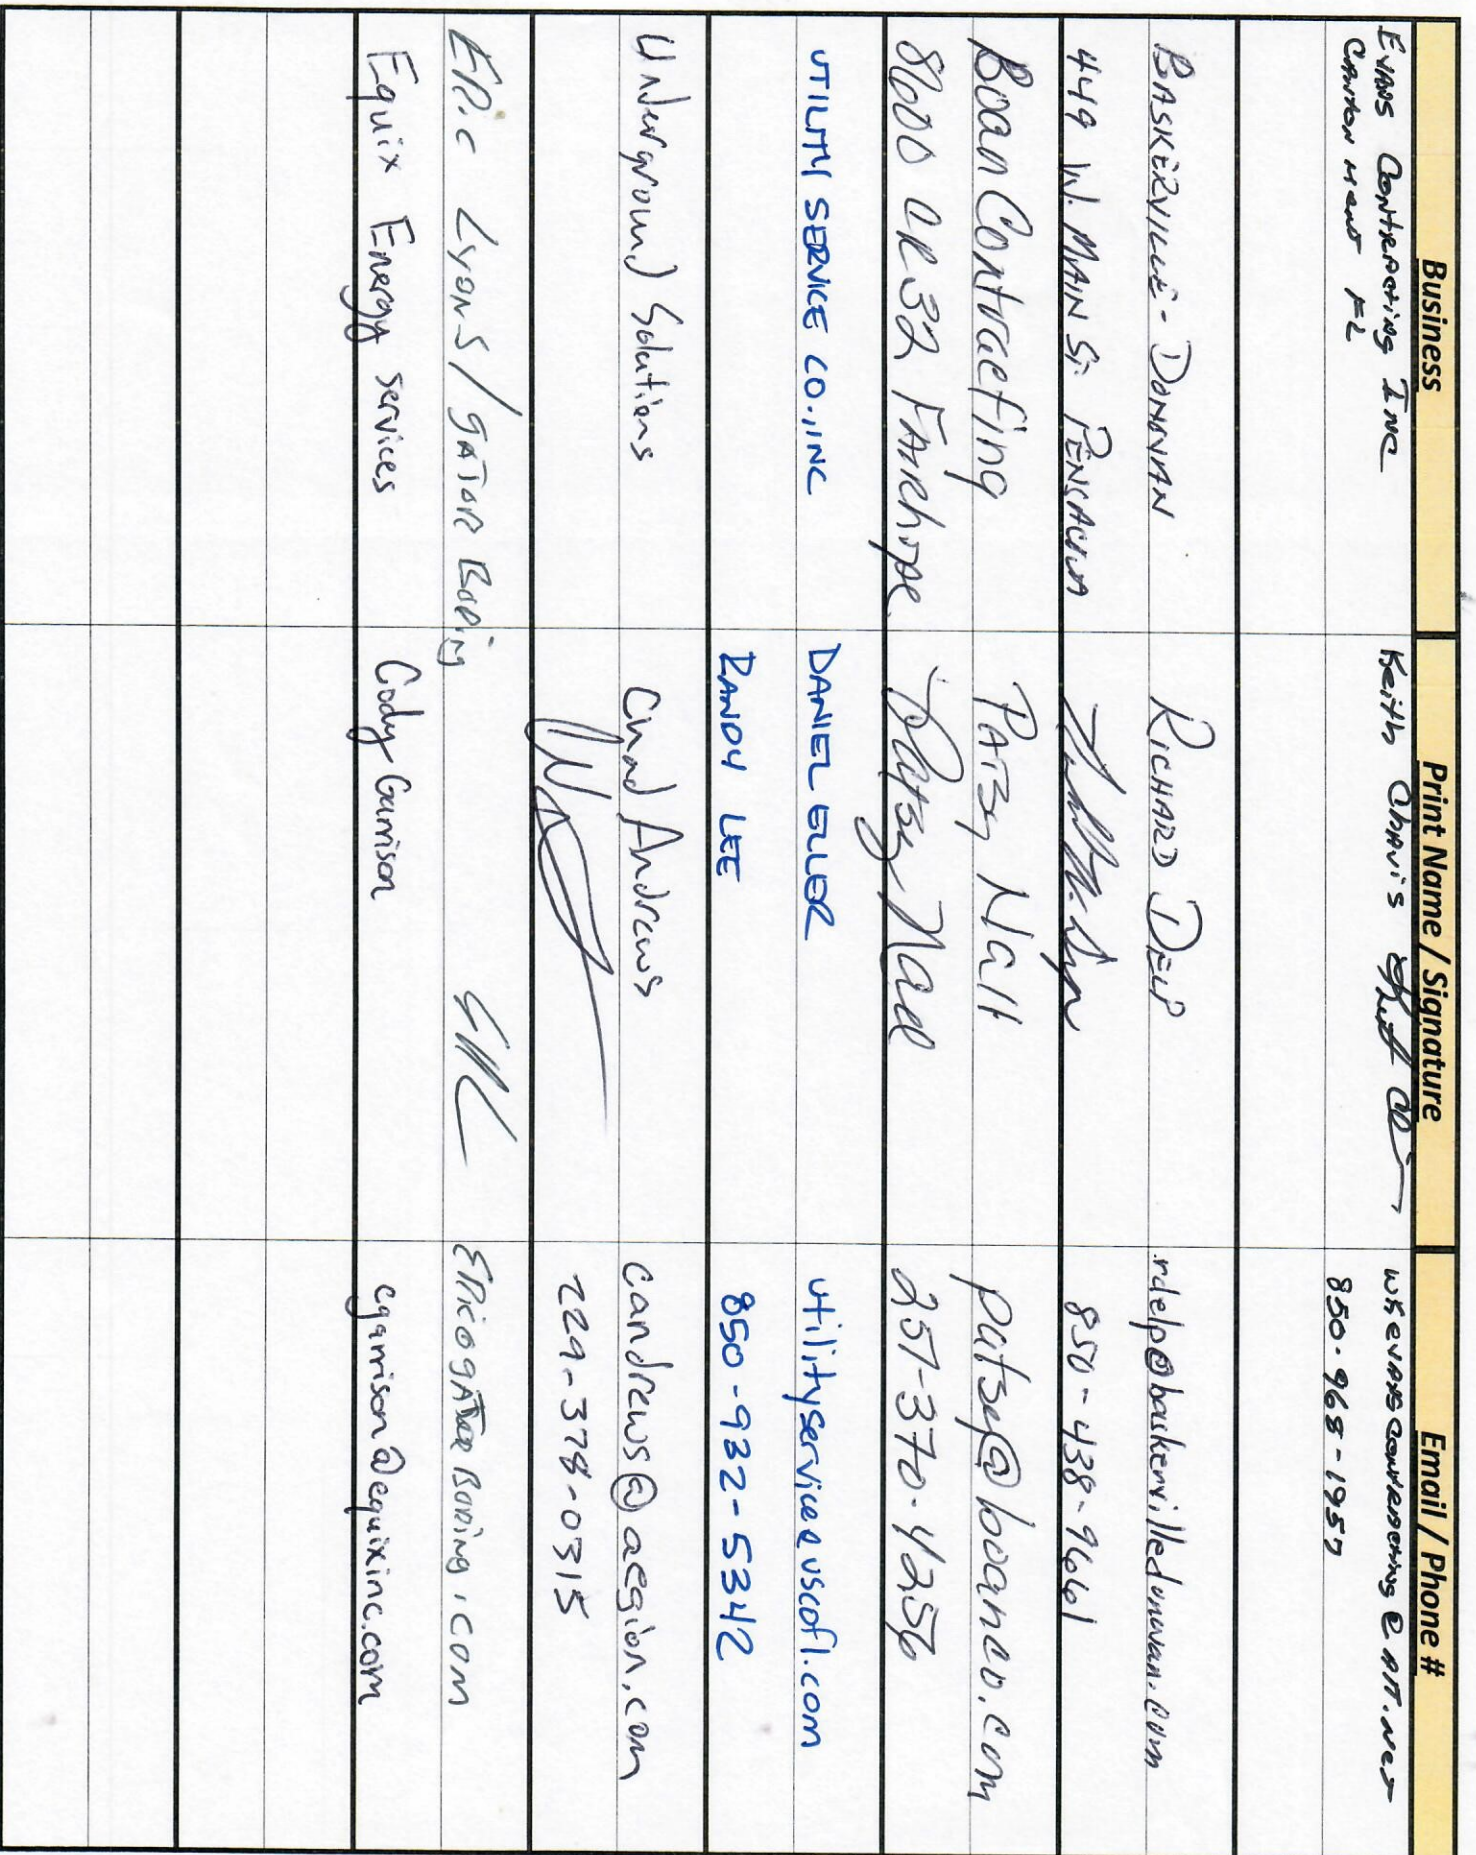 Business Print Name / Signature Email / Phone #
EVANS Contracting Inc Keith Chavis wkevanscontracting@att.net
Cantonment FL 850-968-1957
BASKERVILLE-DONNAN RICHARD DELP rdelp@baskervilledonovan.com
449 W. MAIN St. PENSACOLA 850-438-9661
Boan Contracting Patsy Nall patsy@boanco.com
8600 CR 32 FAIRhope Patsy Nall 251-370-4256
UTILITY SERVICE CO., INC DANIEL ELLER utilityservice@uscofl.com
RANDY LEE 850-932-5342
Underground Solutions Chad Andrews candrews@aegion.com
229-378-0315
ERic Lyons / gATOR BORing ERic@gATORBORing.com
Equix Energy Services Cody Garrison cgarrison@equixinc.com